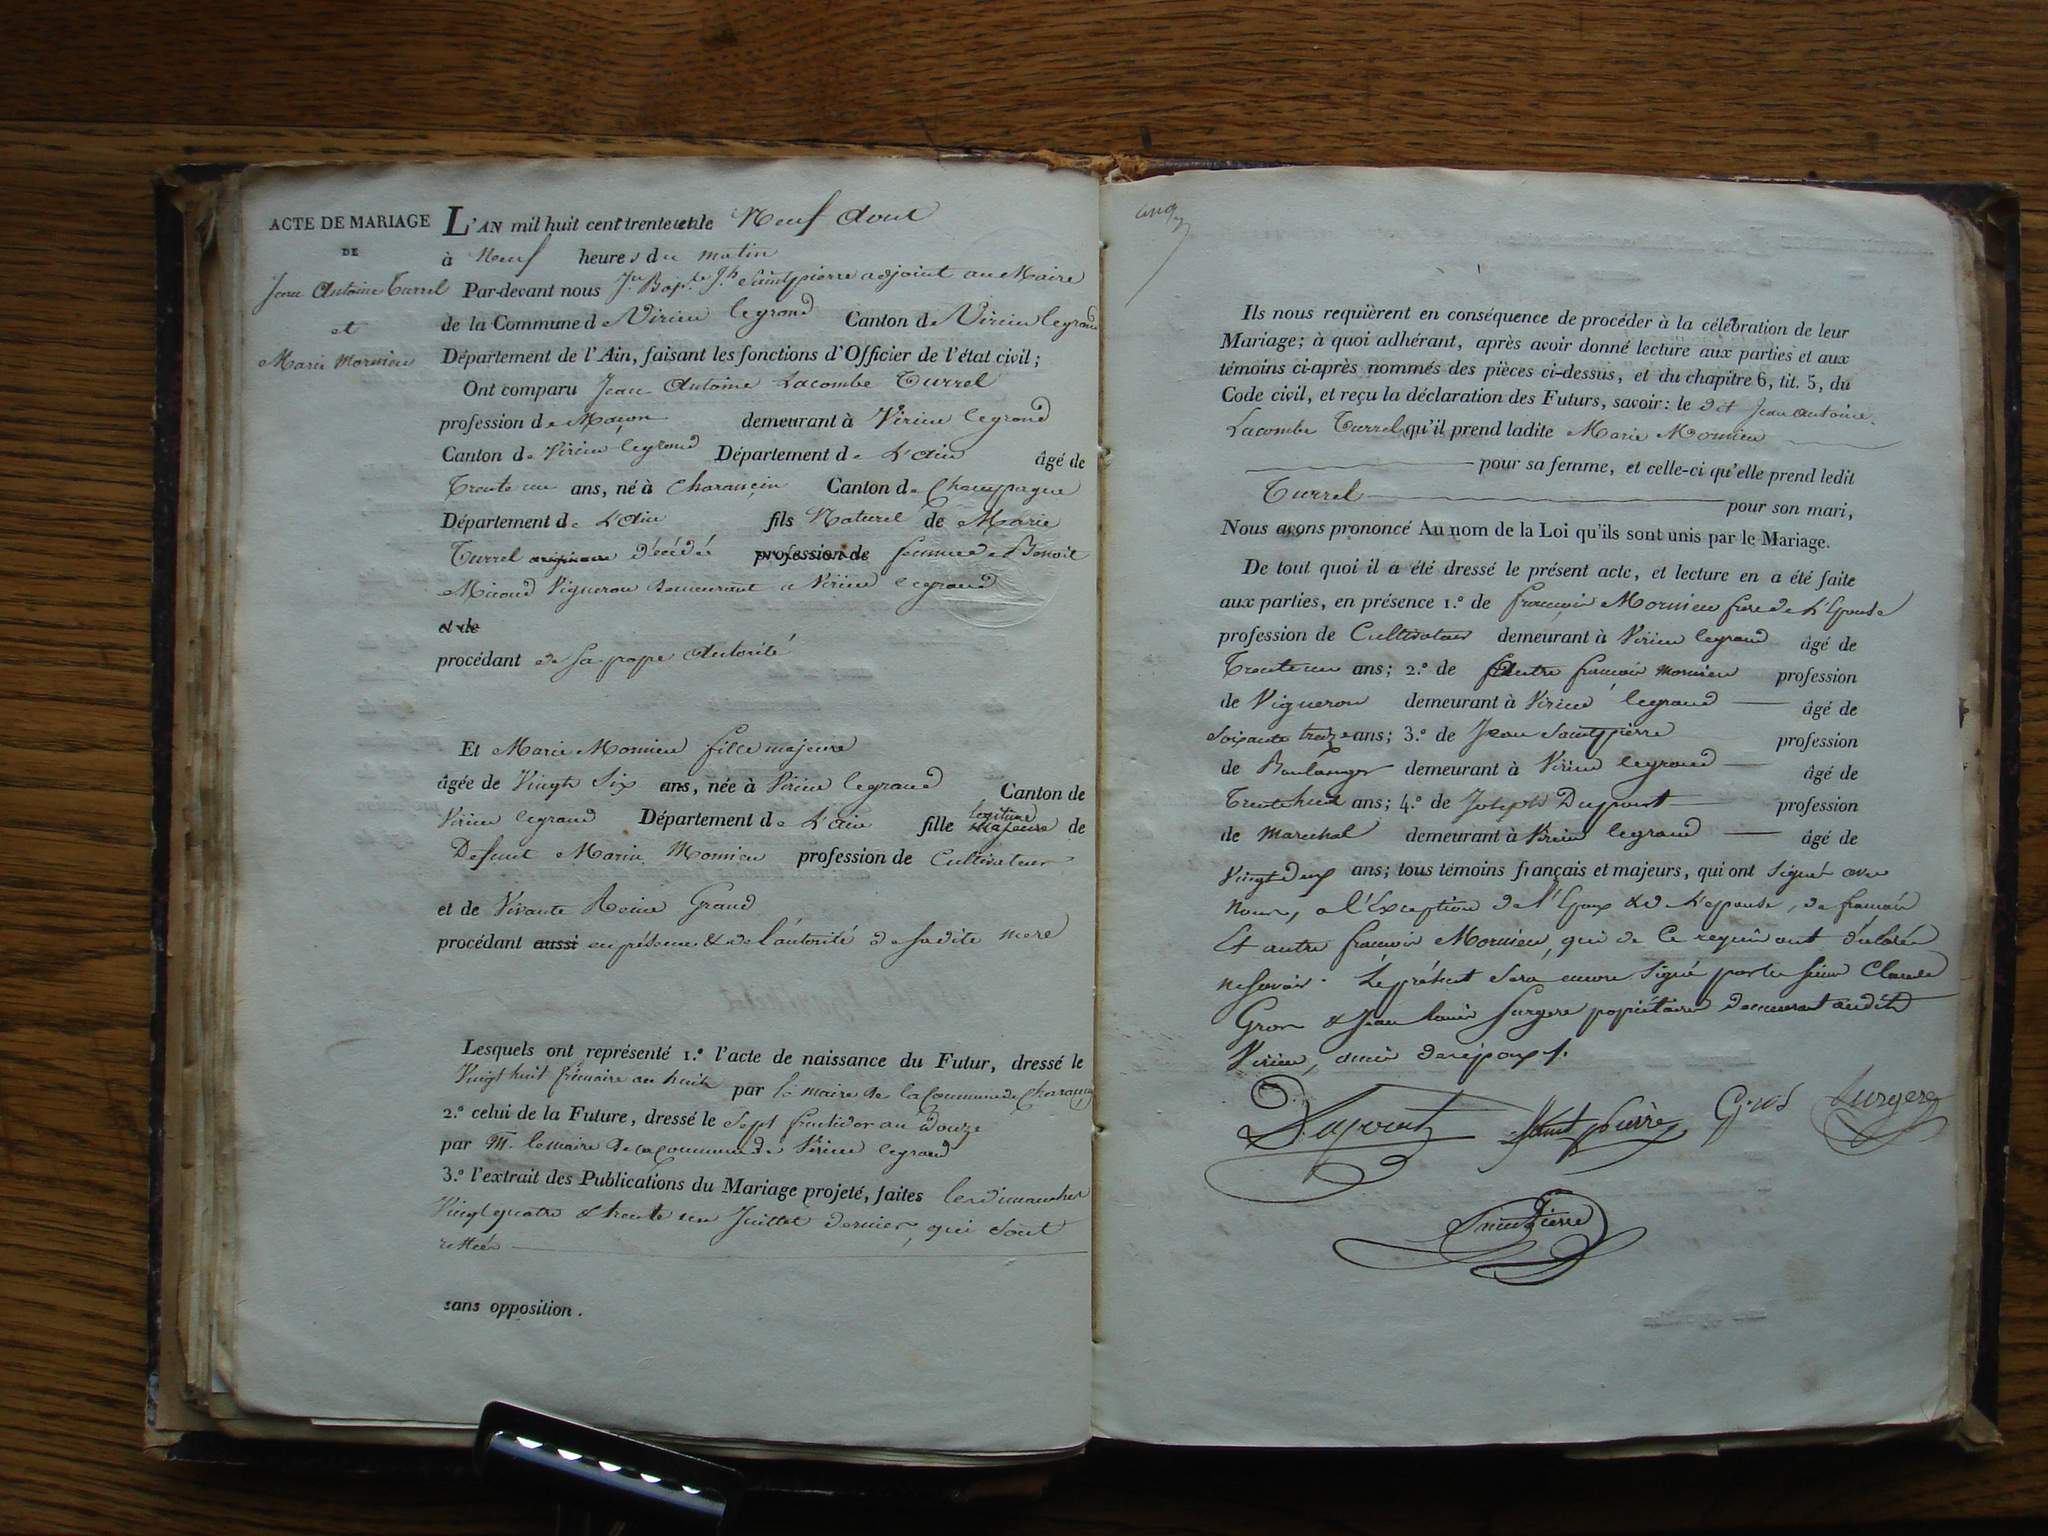 ACTE DE MARIAGE
DE
Jean Antoine Turrel
et
Marie Mornieu
L'AN mil huit cent trente et un le Neuf Aout
à Neuf heures du matin
Par-devant nous Jn Bapte Jh Saintpierre adjoint au Maire
de la Commune de Virieu legrand Canton de Virieu legrand
Département de l'Ain, faisant les fonctions d'Officier de l'état civil;
Ont comparu Jean Antoine Lacombe Turrel
profession de Maçon demeurant à Virieu legrand
Canton de Virieu legrand Département de L'ain âgé de
Trente un ans, né à Charancin Canton de Champagne
Département de L'ain fils Naturel de Marie
Turrel originaire décédée profession de femme de Benoit
Micoud Vigneron demeurant a Virieu legrand
et de
procédant de sa propre Autorité
Et Marie Mornieu fille majeure
âgée de Vingt Six ans, née à Virieu legrand Canton de
Virieu legrand Département de L'ain fille Majeure legitime de
Defunt Marin Mornieu profession de Cultivateur
et de Vivante Reine Grand
procédant aussi en présence & de l'autorité de sadite mere
Lesquels ont représenté 1.º l'acte de naissance du Futur, dressé le
Vingt huit frimaire an huit par le maire de la Commune de Charancin
2.º celui de la Future, dressé le Sept fructidor an douze
par M. le maire de la Commune de Virieu legrand
3.º l'extrait des Publications du Mariage projeté, faites les dimanches
Vingt quatre & trente un Juillet dernier, qui sont
restées
sans opposition.
Ils nous requièrent en conséquence de procéder à la célébration de leur
Mariage; à quoi adhérant, après avoir donné lecture aux parties et aux
témoins ci-après nommés des pièces ci-dessus, et du chapitre 6, tit. 5, du
Code civil, et reçu la déclaration des Futurs, savoir: le dit Jean Antoine
Lacombe Turrel qu'il prend ladite Marie Mornieu
pour sa femme, et celle-ci qu'elle prend ledit
Turrel pour son mari,
Nous avons prononcé Au nom de la Loi qu'ils sont unis par le Mariage.
De tout quoi il a été dressé le présent acte, et lecture en a été faite
aux parties, en présence 1.º de françois Mornieu frere de L'Epouse
profession de Cultivateur demeurant à Virieu legrand âgé de
Trente un ans; 2.º de Autre françois Mornieu profession
de Vigneron demeurant à Virieu legrand âgé de
Soixante treize ans; 3.º de Jean Saintpierre profession
de Boulanger demeurant à Virieu legrand âgé de
Trente huit ans; 4.º de Joseph Dupont profession
de Marechal demeurant à Virieu legrand âgé de
Vingt deux ans; tous témoins français et majeurs, qui ont Signé avec
nous, a l'Exception de l'Epoux & de L'epouse, de françois
Et autre françois Mornieu, qui de Ce requis ont déclarés
ne savoir. Le présent sera encore Signé par les sieurs Claude
Gros & Jean Louis Surgere propiétaires demeurant audit
Virieu, amis des époux /.
Dupont Saint pierre Gros Surgere
Saint Pierre